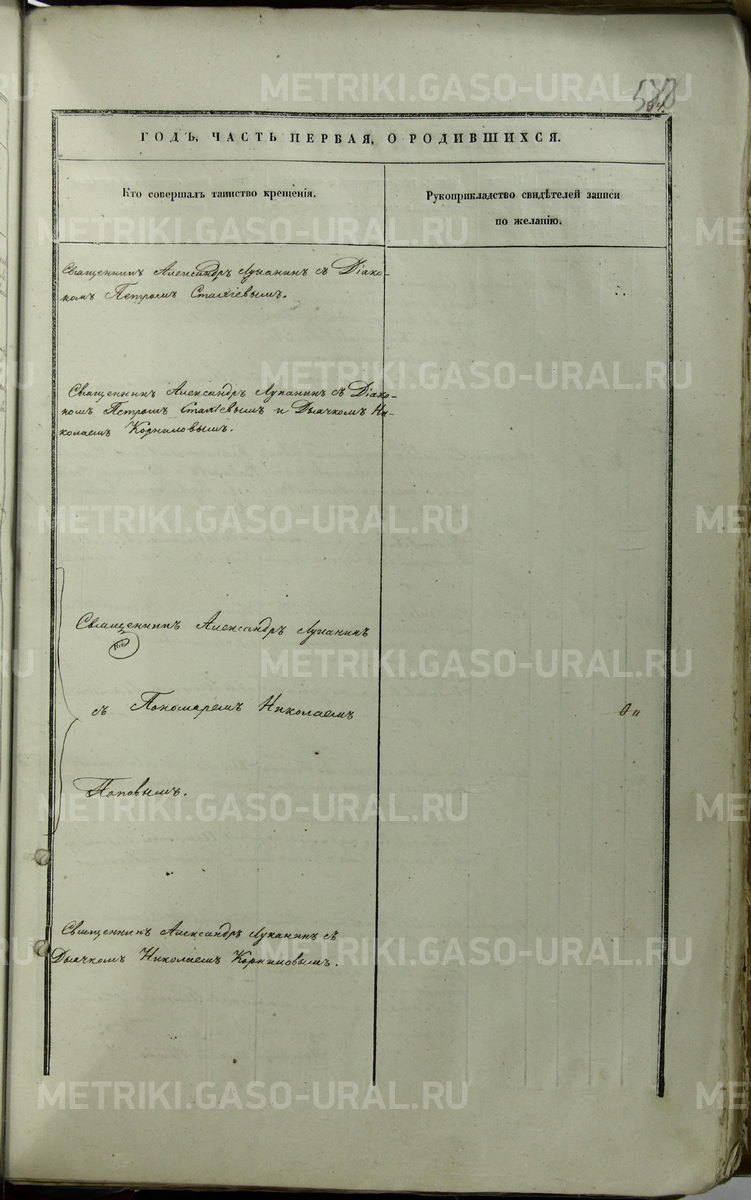 ГОДЪ, ЧАСТЬ ПЕРВАЯ, О РОДИВШИХСЯ.
Кто совершалъ таинство крещенія.
Рукоприкладство свидѣтелей записи
по желанію.
Священникъ Александръ Луканинъ съ Діако-
номъ Петромъ Стахіевымъ.
Священникъ Александръ Луканинъ съ Діако-
номъ Петромъ Стахіевымъ и Дьячкомъ Ни-
колаемъ Корниловымъ.
Священникъ Александръ Луканинъ
съ Пономаремъ Николаемъ
Поповымъ.
Священникъ Александръ Луканинъ съ
Дьячкомъ Николаемъ Корниловымъ.
METRIKI.GASO-URAL.RU